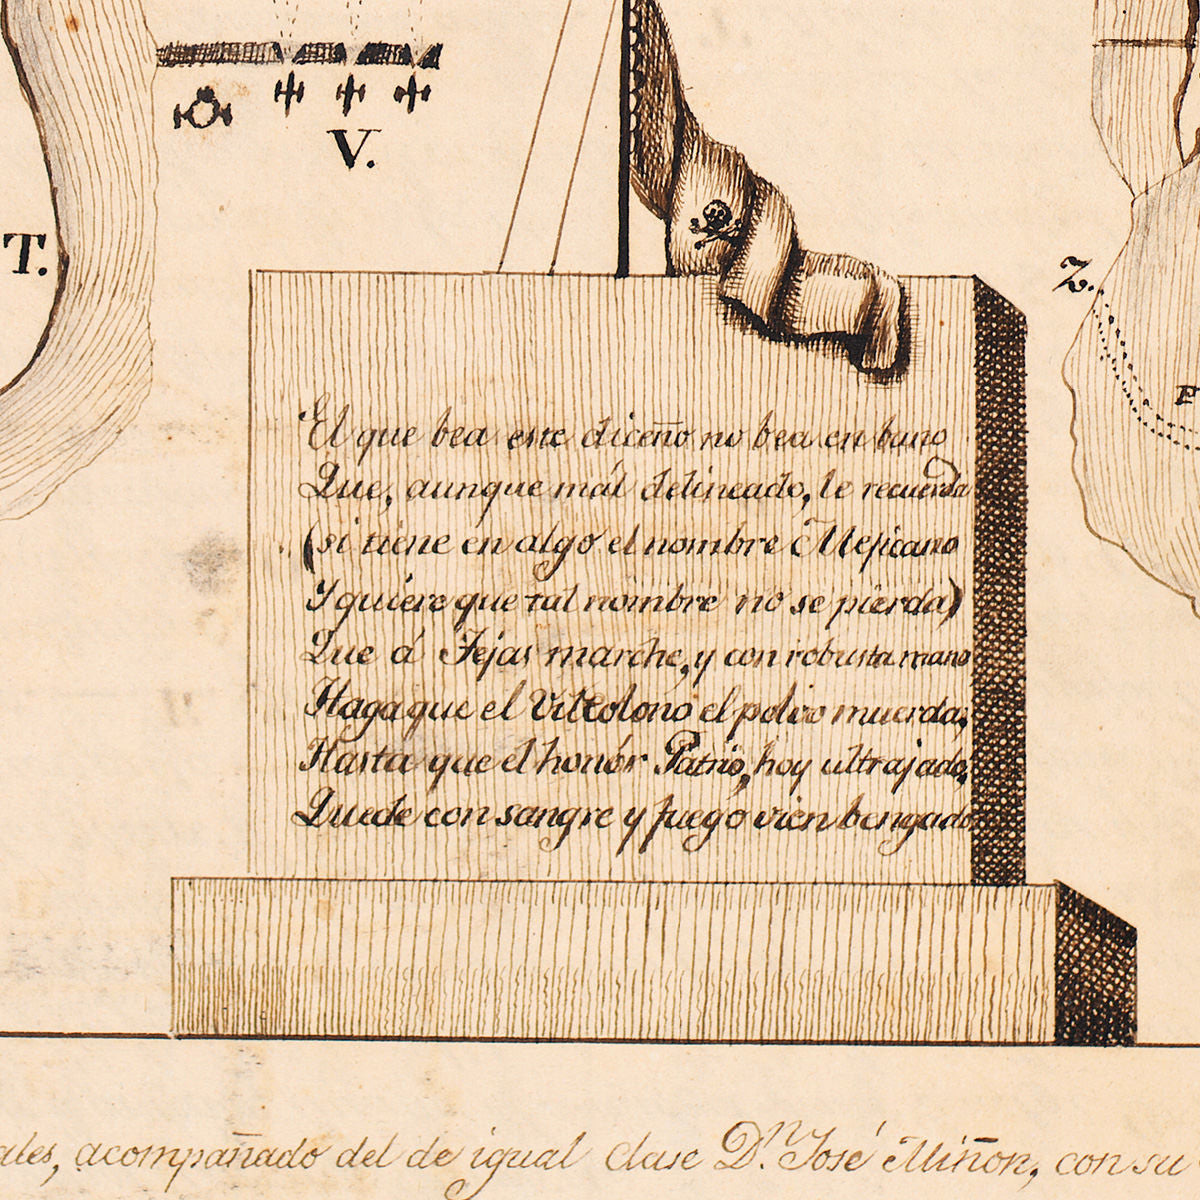 V.
T.
Z.
P
El que bea este diceño no bea en bano
Que, aunque mál delineado, le recuerda
(si tiene en algo el nombre Mejicano
Y quiére que tal nombre no se pierda)
Que á Tejas marche, y con robusta mano
Haga que el Vil Colono el polvo muerda,
Hasta que el honór Patrio, hoy ultrajado,
Quede con sangre y fuego vien bengado
ales, acompañado del de igual clase D.n José Miñon, con su